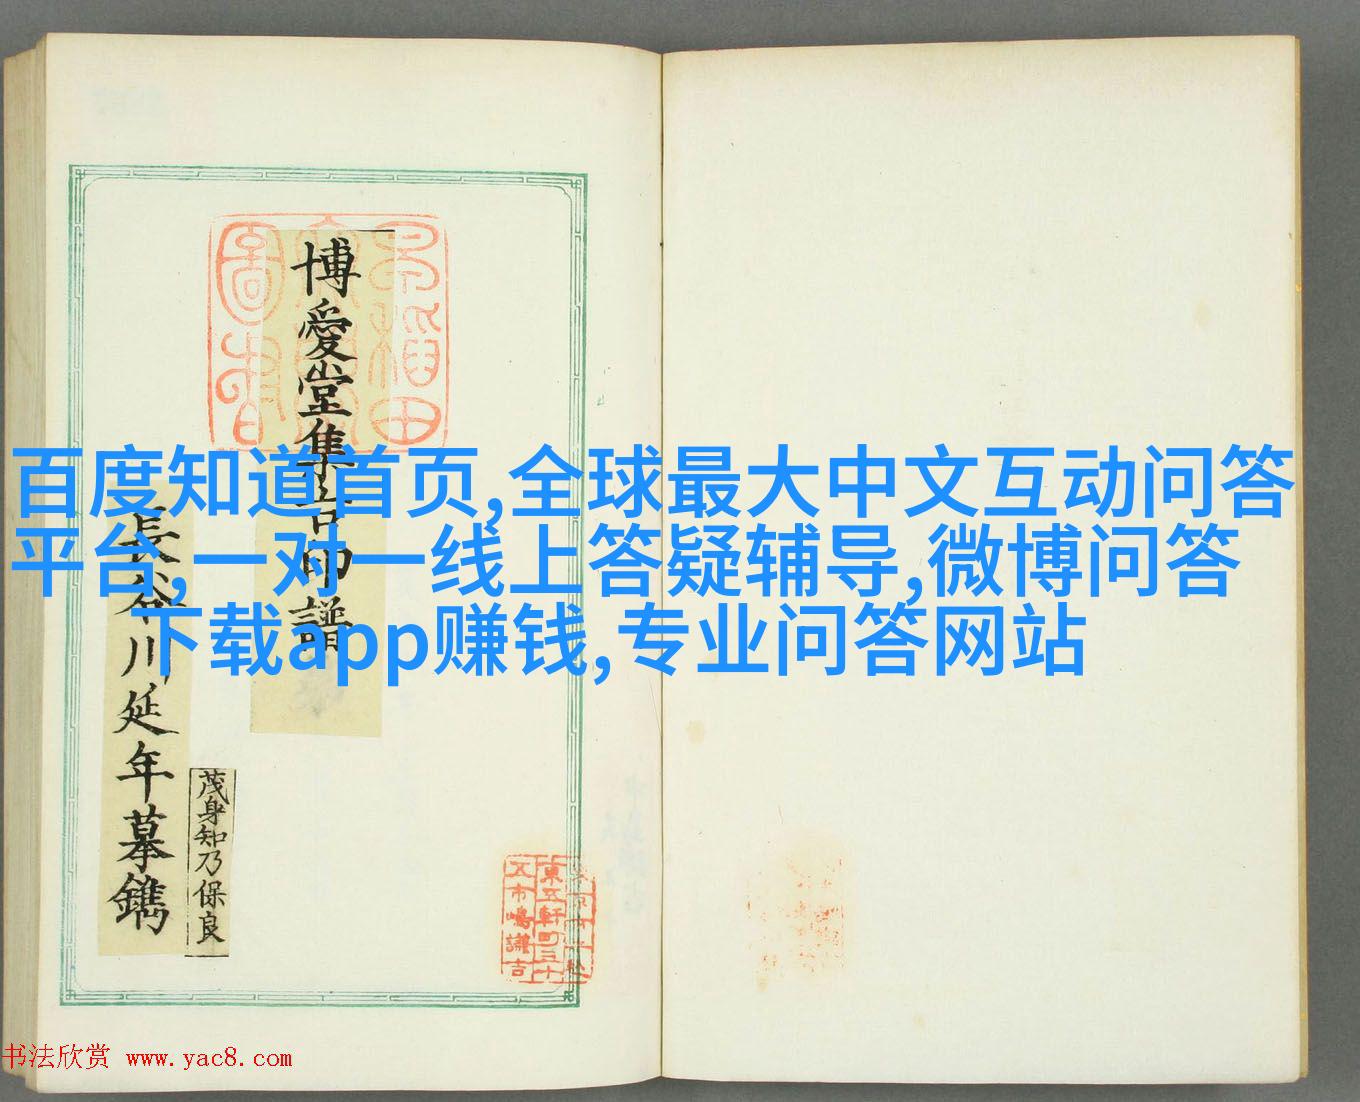 百度知道首页,全球最大中文互动问答
平台,一对一线上答疑辅导,微博问答
下载app赚钱,专业问答网站
博愛堂集古印譜
長谷川延年摹鐫
茂身知乃保良
早稲田
文庫
圖書
東五軒町三十
五市嶋謙吉
书法欣赏 www.yac8.com